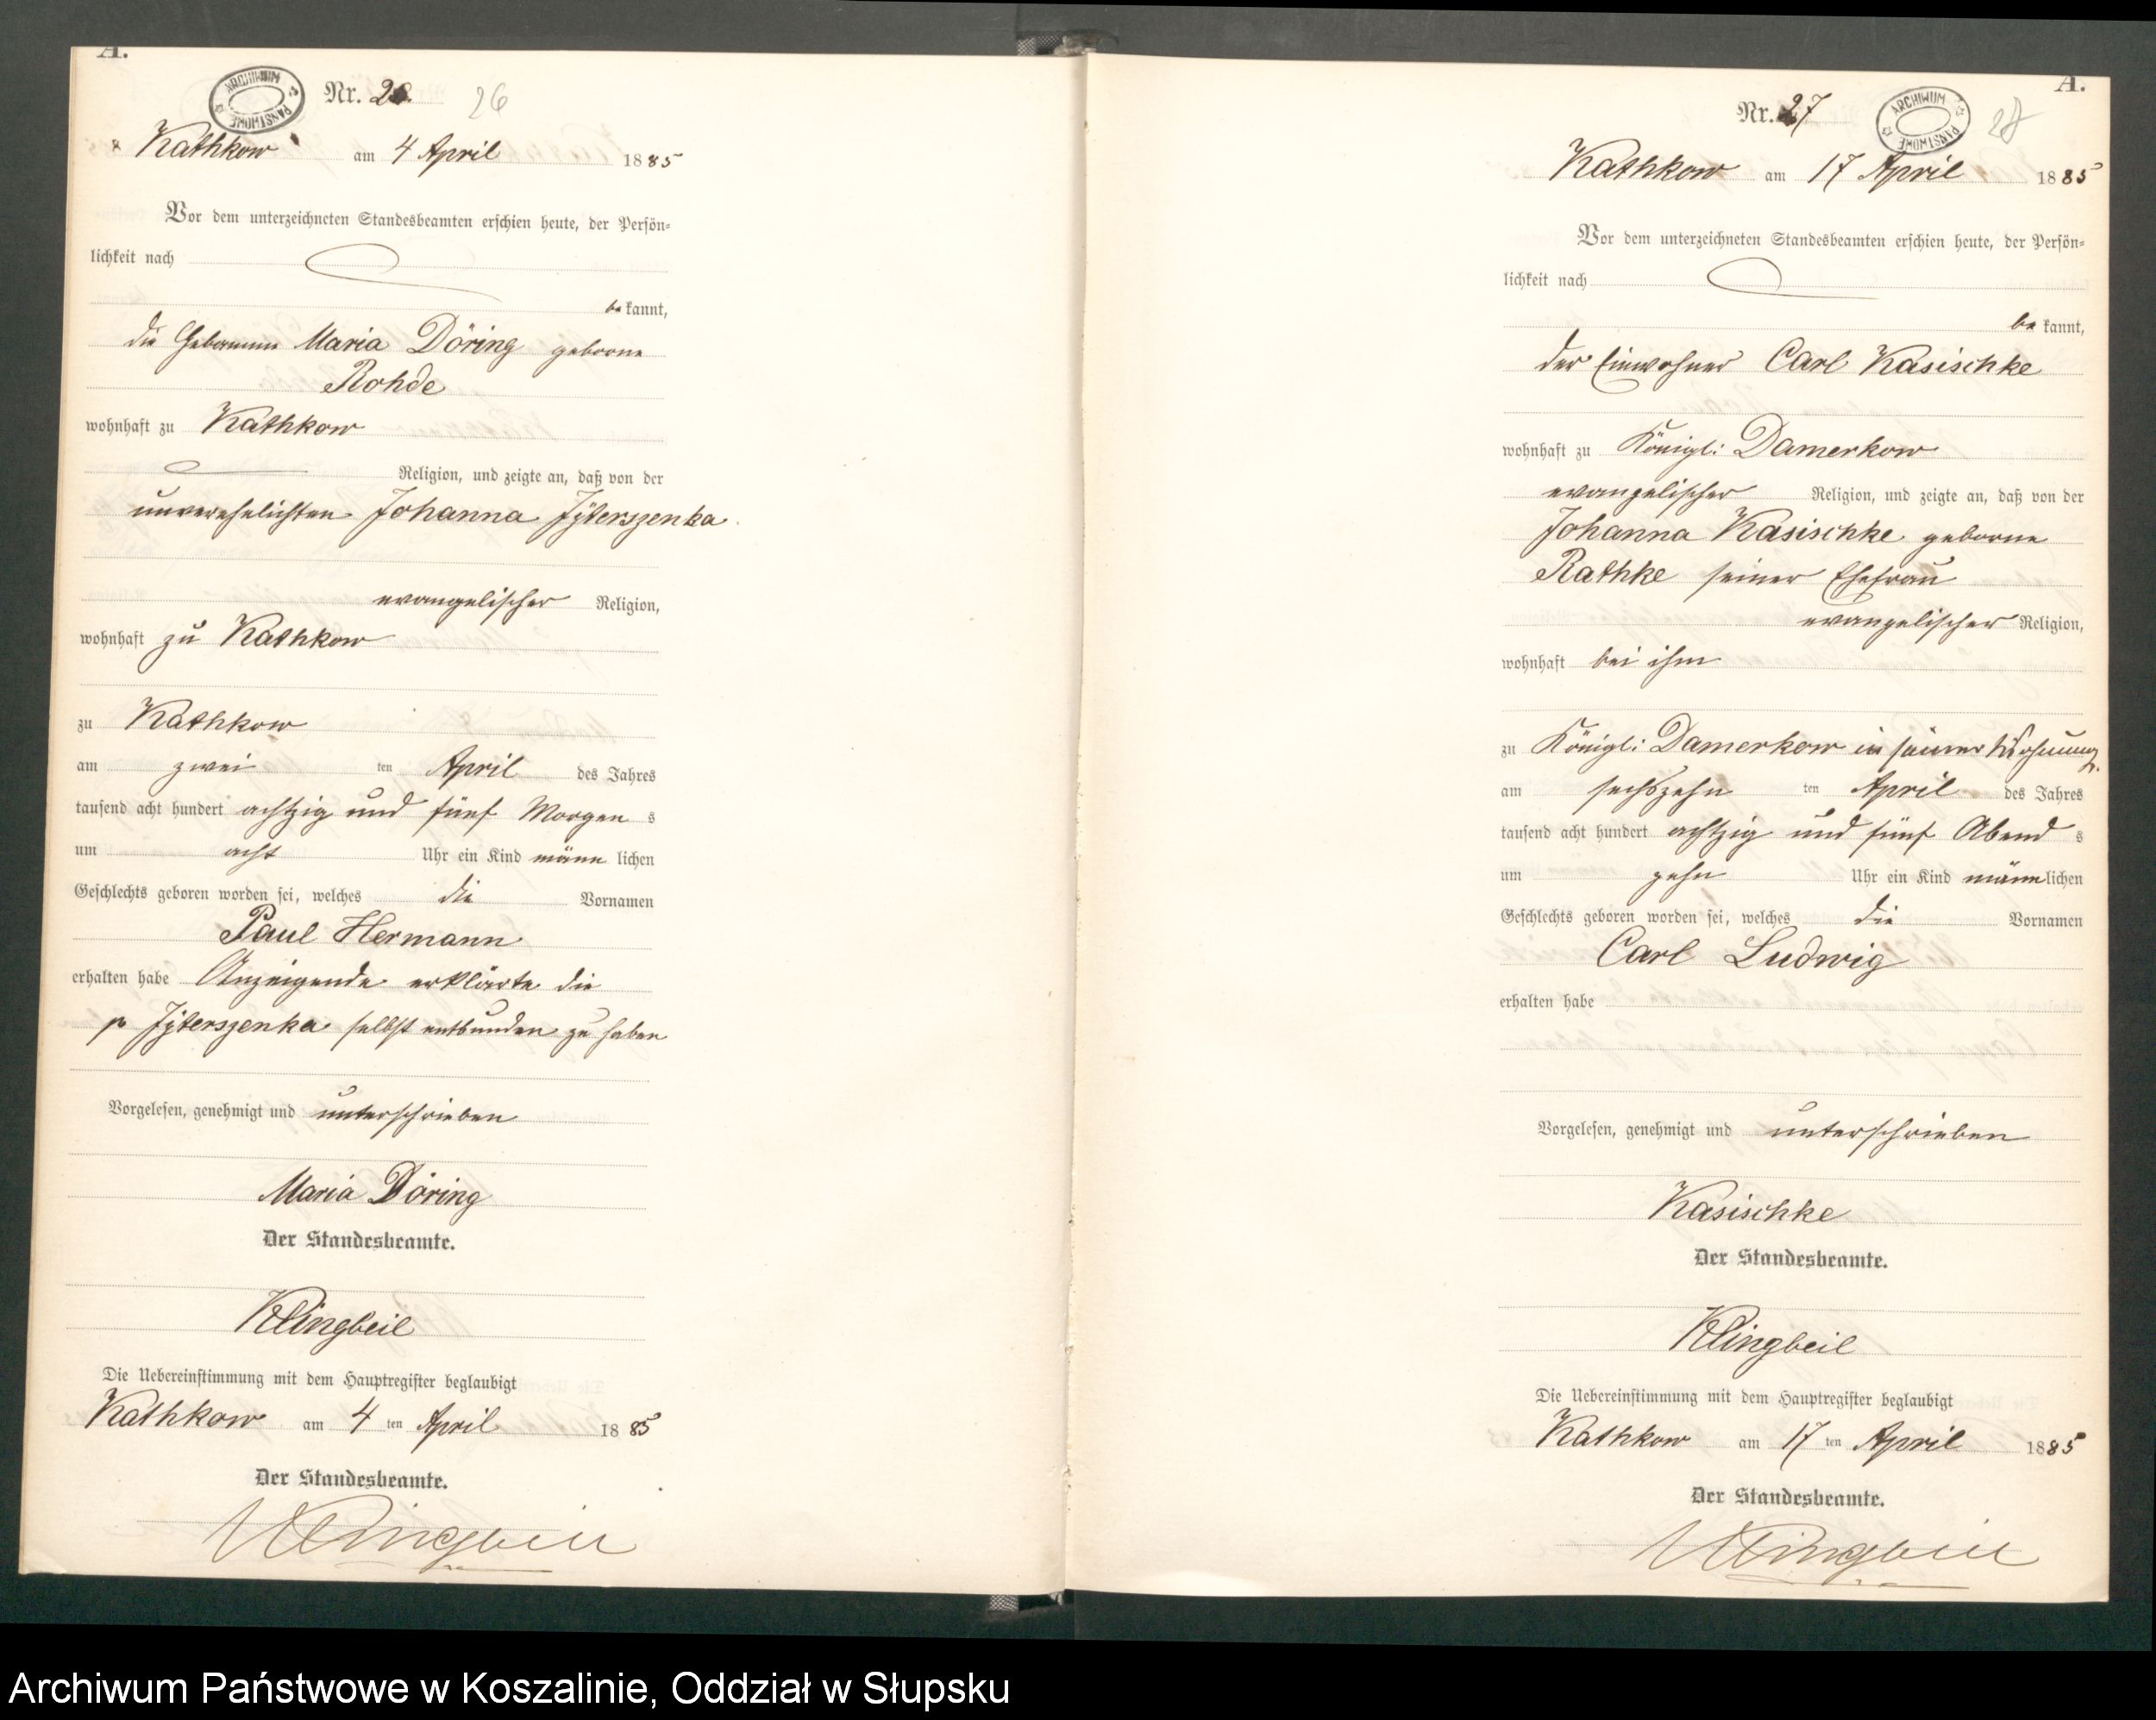 A.
ARCHIWUM PAŃSTWOWE
Nr. 26. 26
Kathkow am 4 April 1885
Vor dem unterzeichneten Standesbeamten erschien heute, der Persön-
lichkeit nach
be kannt,
die Hebamme Maria Döring geborne
Rohde
wohnhaft zu Kathkow
Religion, und zeigte an, daß von der
unverehelichten Johanna Jÿterszenka
evangelischer Religion,
wohnhaft zu Kathkow
zu Kathkow
am zwei ten April des Jahres
tausend acht hundert achtzig und fünf Morgen s
um acht Uhr ein Kind männ lichen
Geschlechts geboren worden sei, welches die Vornamen
Paul Hermann
erhalten habe Anzeigende erklärte die
p Jÿterszenka selbst entbunden zu haben
Vorgelesen, genehmigt und unterschrieben
Maria Döring
Der Standesbeamte.
Klingbeil
Die Uebereinstimmung mit dem Hauptregister beglaubigt
Kathkow am 4 ten April 1885
Der Standesbeamte.
Klingbeil
A.
Nr. 27 ARCHIWUM PAŃSTWOWE 27
Kathkow am 17 April 1885
Vor dem unterzeichneten Standesbeamten erschien heute, der Persön-
lichkeit nach
be kannt,
der Einwohner Carl Kasischke
wohnhaft zu Königl: Damerkow
evangelischer Religion, und zeigte an, daß von der
Johanna Kasischke geborne
Rathke seiner Ehefrau
evangelischer Religion,
wohnhaft bei ihm
zu Königl: Damerkow in seiner Wohnung
am sechszehn ten April des Jahres
tausend acht hundert achtzig und fünf Abend s
um zehn Uhr ein Kind männlichen
Geschlechts geboren worden sei, welches die Vornamen
Carl Ludwig
erhalten habe
Vorgelesen, genehmigt und unterschrieben
Kasischke
Der Standesbeamte.
Klingbeil
Die Uebereinstimmung mit dem Hauptregister beglaubigt
Kathkow am 17 ten April 1885
Der Standesbeamte.
Klingbeil
Archiwum Państwowe w Koszalinie, Oddział w Słupsku